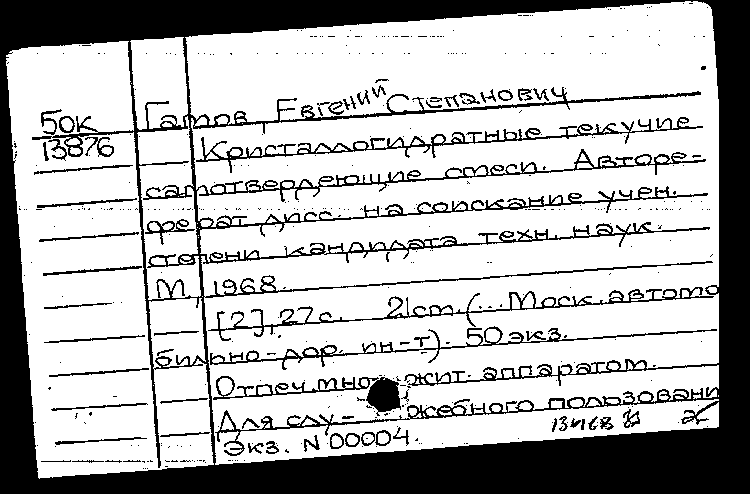 50К
13876
Гамов, Евгений Степанович
Кристаллогидратные текучие
самотвердеющие смеси. Авторе-
ферат дисс. на соискание учен.
степени кандидата техн. наук.
М., 1968.
[2], 27 с. 21 см. (... Моск. автомо
бильно-дор. ин-т). 50 экз.
Отпеч. множит. аппаратом.
Для слу- жебного пользовани
Экз. N 00004.